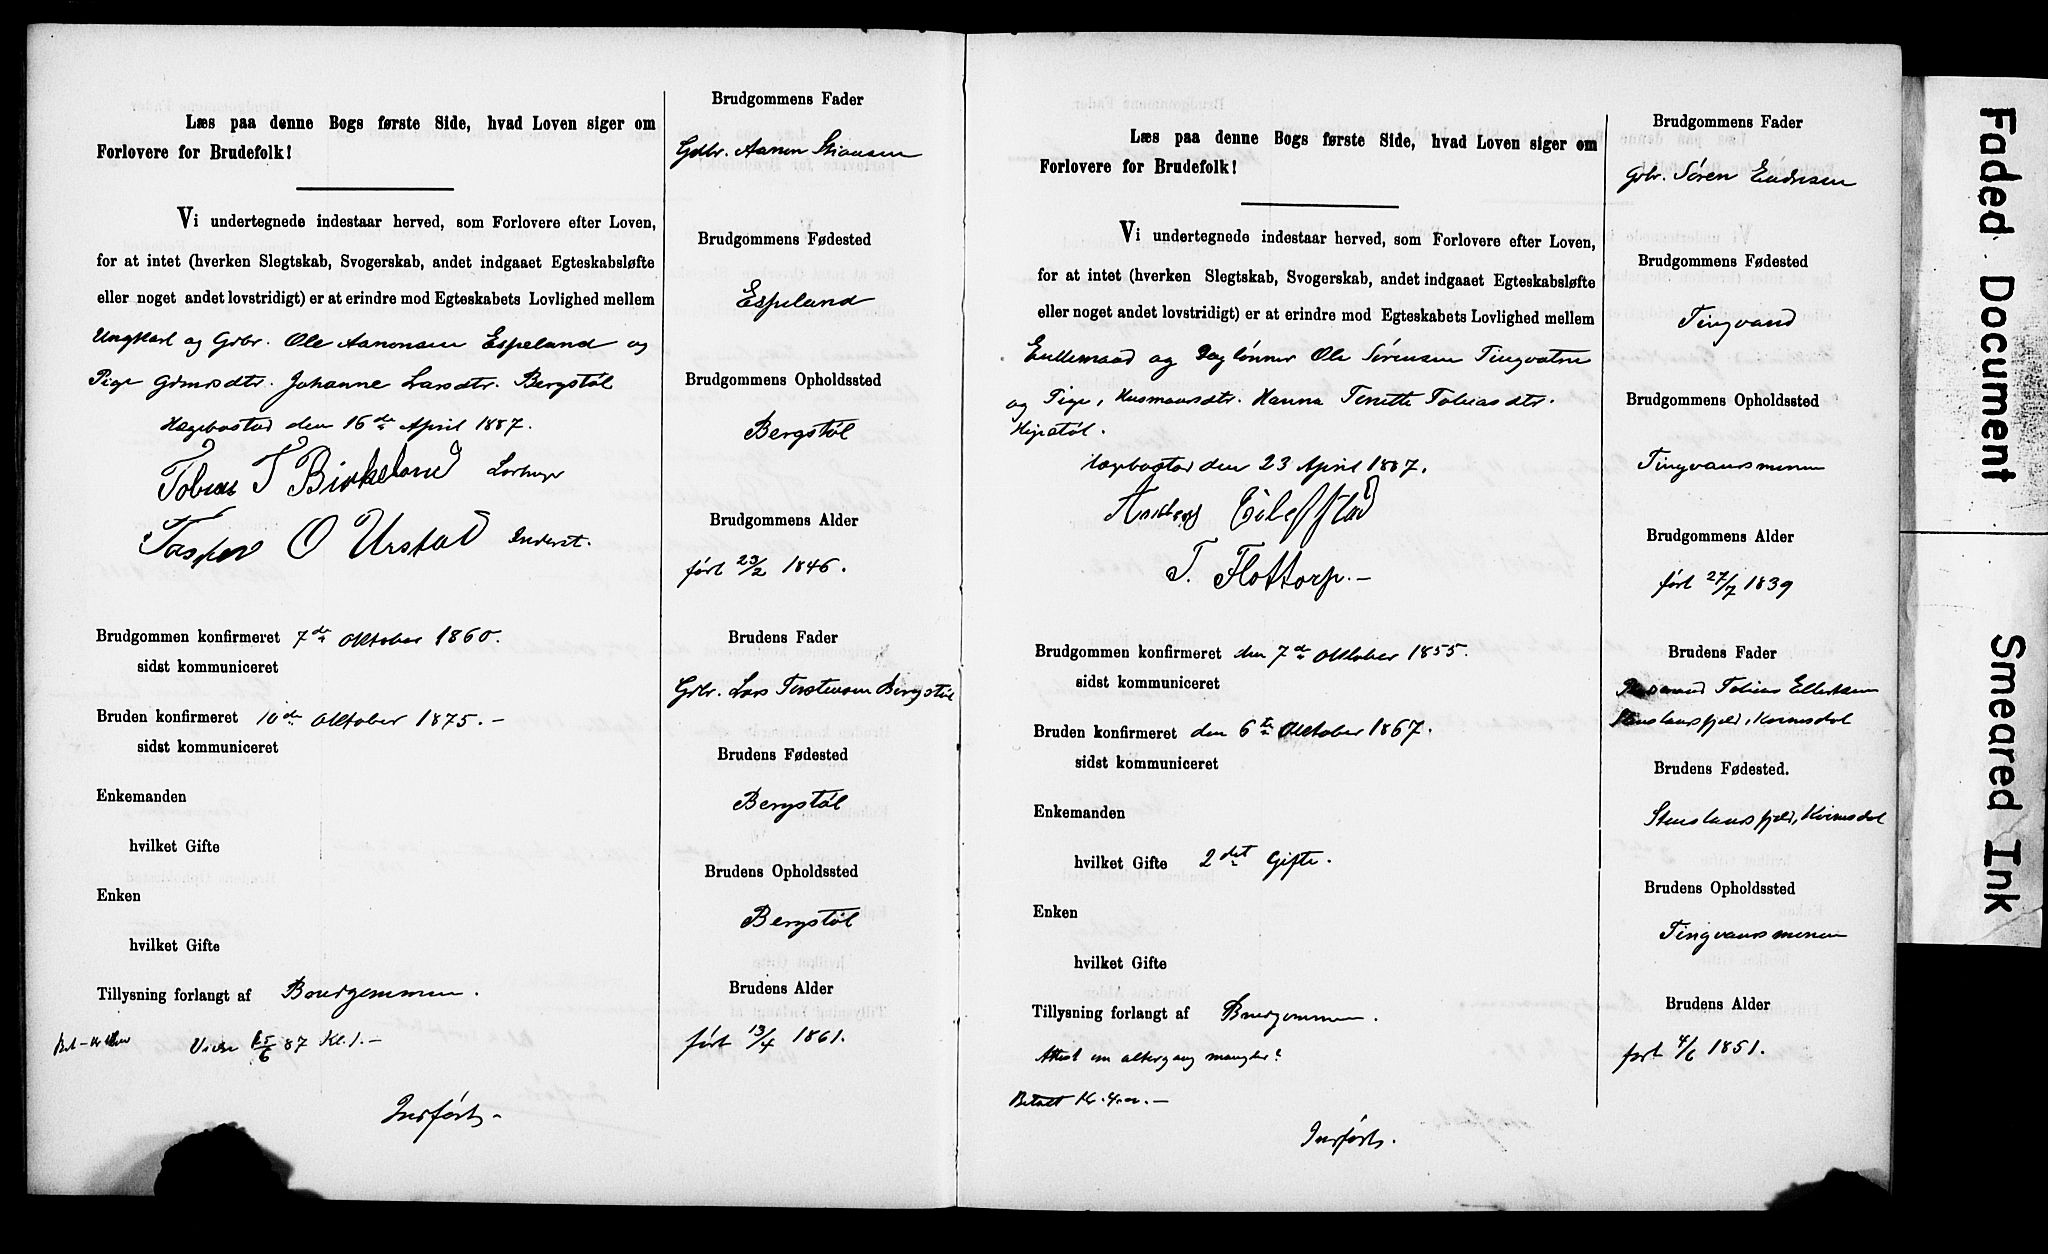 Læs paa denne Bogs første Side, hvad Loven siger om
Forlovere for Brudefolk!
Vi undertegnede indestaar herved, som Forlovere efter Loven,
for at intet (hverken Slegtskab, Svogerskab, andet indgaaet Egteskabsløfte
eller noget andet lovstridigt) er at erindre mod Egteskabets Lovlighed mellem
Ungkarl og Gdbr. Ole Aanonsen Espeland og
Pige Gdmdsdtr. Johanne Larsdtr. Bergstøl
Hægebostad den 16de April 1887.
Tobias T Birkeland
O Urstad Inderst.
Brudgommen konfirmeret 7de Oktober 1860.
sidst kommuniceret
Bruden konfirmeret 10de Oktober 1875. -
sidst kommuniceret
Enkemanden
hvilket Gifte
Enken
hvilket Gifte
Tillysning forlangt af Brudgommen.
Vielse 25/6 87 Kl. 1. -
Indført. -
Brudgommens Fader
Gdbr. Aanon
Brudgommens Fødested
Espeland
Brudgommens Opholdssted
Bergstøl
Brudgommens Alder
født 23/2 1846.
Brudens Fader
Gdbr. Lars Torstensen Bergstøl
Brudens Fødested
Bergstøl
Brudens Opholdssted
Bergstøl
Brudens Alder
født 13/4 1861.
Læs paa denne Bogs første Side, hvad Loven siger om
Forlovere for Brudefolk!
Vi undertegnede indestaar herved, som Forlovere efter Loven,
for at intet (hverken Slegtskab, Svogerskab, andet indgaaet Egteskabsløfte
eller noget andet lovstridigt) er at erindre mod Egteskabets Lovlighed mellem
Enkemand og Daglønner Ole Sørensen Tingvatn
og Pige, Husmansdtr. Hanna Tonette Tobiasdtr.
Hægebostad den 23 April 1887.
Eilefstad
T. Flottorp. -
Brudgommen konfirmeret den 7de Oktober 1855.
sidst kommuniceret
Bruden konfirmeret den 6te Oktober 1867.
sidst kommuniceret
Enkemanden
hvilket Gifte 2det Gifte.
Enken
hvilket Gifte
Tillysning forlangt af Brudgommen.
Attest om altergang mangler?
Betalt Kr. 4.00. -
Indført.
Brudgommens Fader
Gbr. Søren Endresen
Brudgommens Fødested
Tingvand
Brudgommens Opholdssted
Tingvandsmoen
Brudgommens Alder
født 27/7 1839
Brudens Fader
Tobias Ellertsen
Stenslandsfjeld, Kvinesdal
Brudens Fødested.
Stenslandsfjeld, Kvinesdal
Brudens Opholdssted
Tingvandsmoen
Brudens Alder
født 4/6 1851.
Faded Document
Smeared Ink